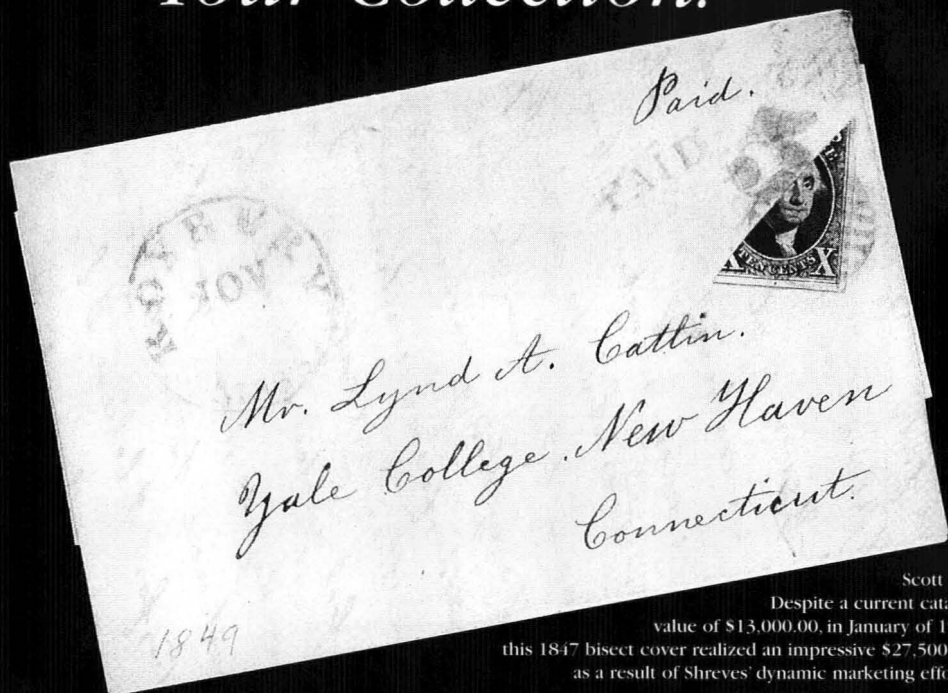 Your Collection.
Paid.
PAID
ROXBURY
NOV
X TEN CENTS X
Mr. Lynd A. Cattin.
Yale College. New Haven
Connecticut.
1849
Scott
Despite a current cata
value of $13,000.00, in January of 1
this 1847 bisect cover realized an impressive $27,500
as a result of Shreves' dynamic marketing effo